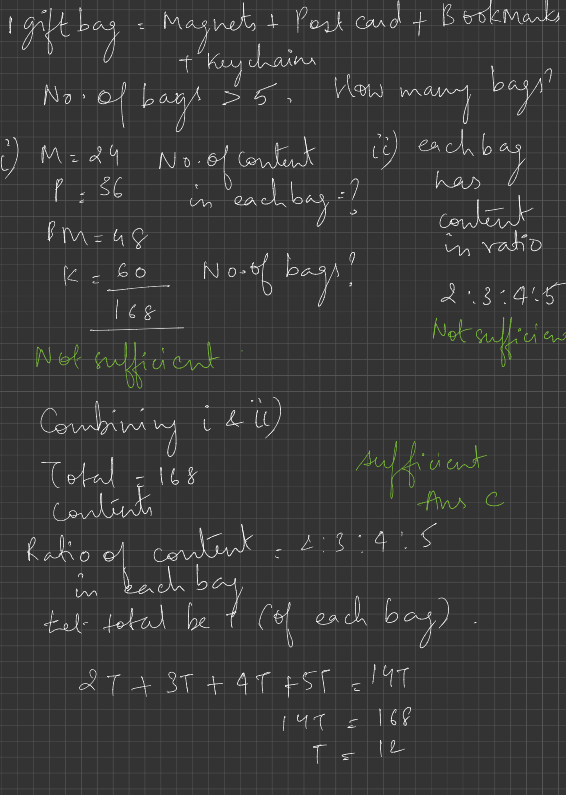 1 gift bag = Magnets + Post card + Bookmarks
+ Key chains
No. of bags > 5. How many bags?
i) M = 24 No. of content
P = 36 in each bag = ?
BM = 48
K = 60 No. of bags?
168
Not sufficient
ii) each bag
has
content
in ratio
2 : 3 : 4 : 5
Not sufficien
Combining i & ii)
Total = 168
contents
sufficient
Ans C
Ratio of content = 2 : 3 : 4 : 5
in each bag
let total be T (of each bag).
2T + 3T + 4T + 5T = 14T
14T = 168
T = 12